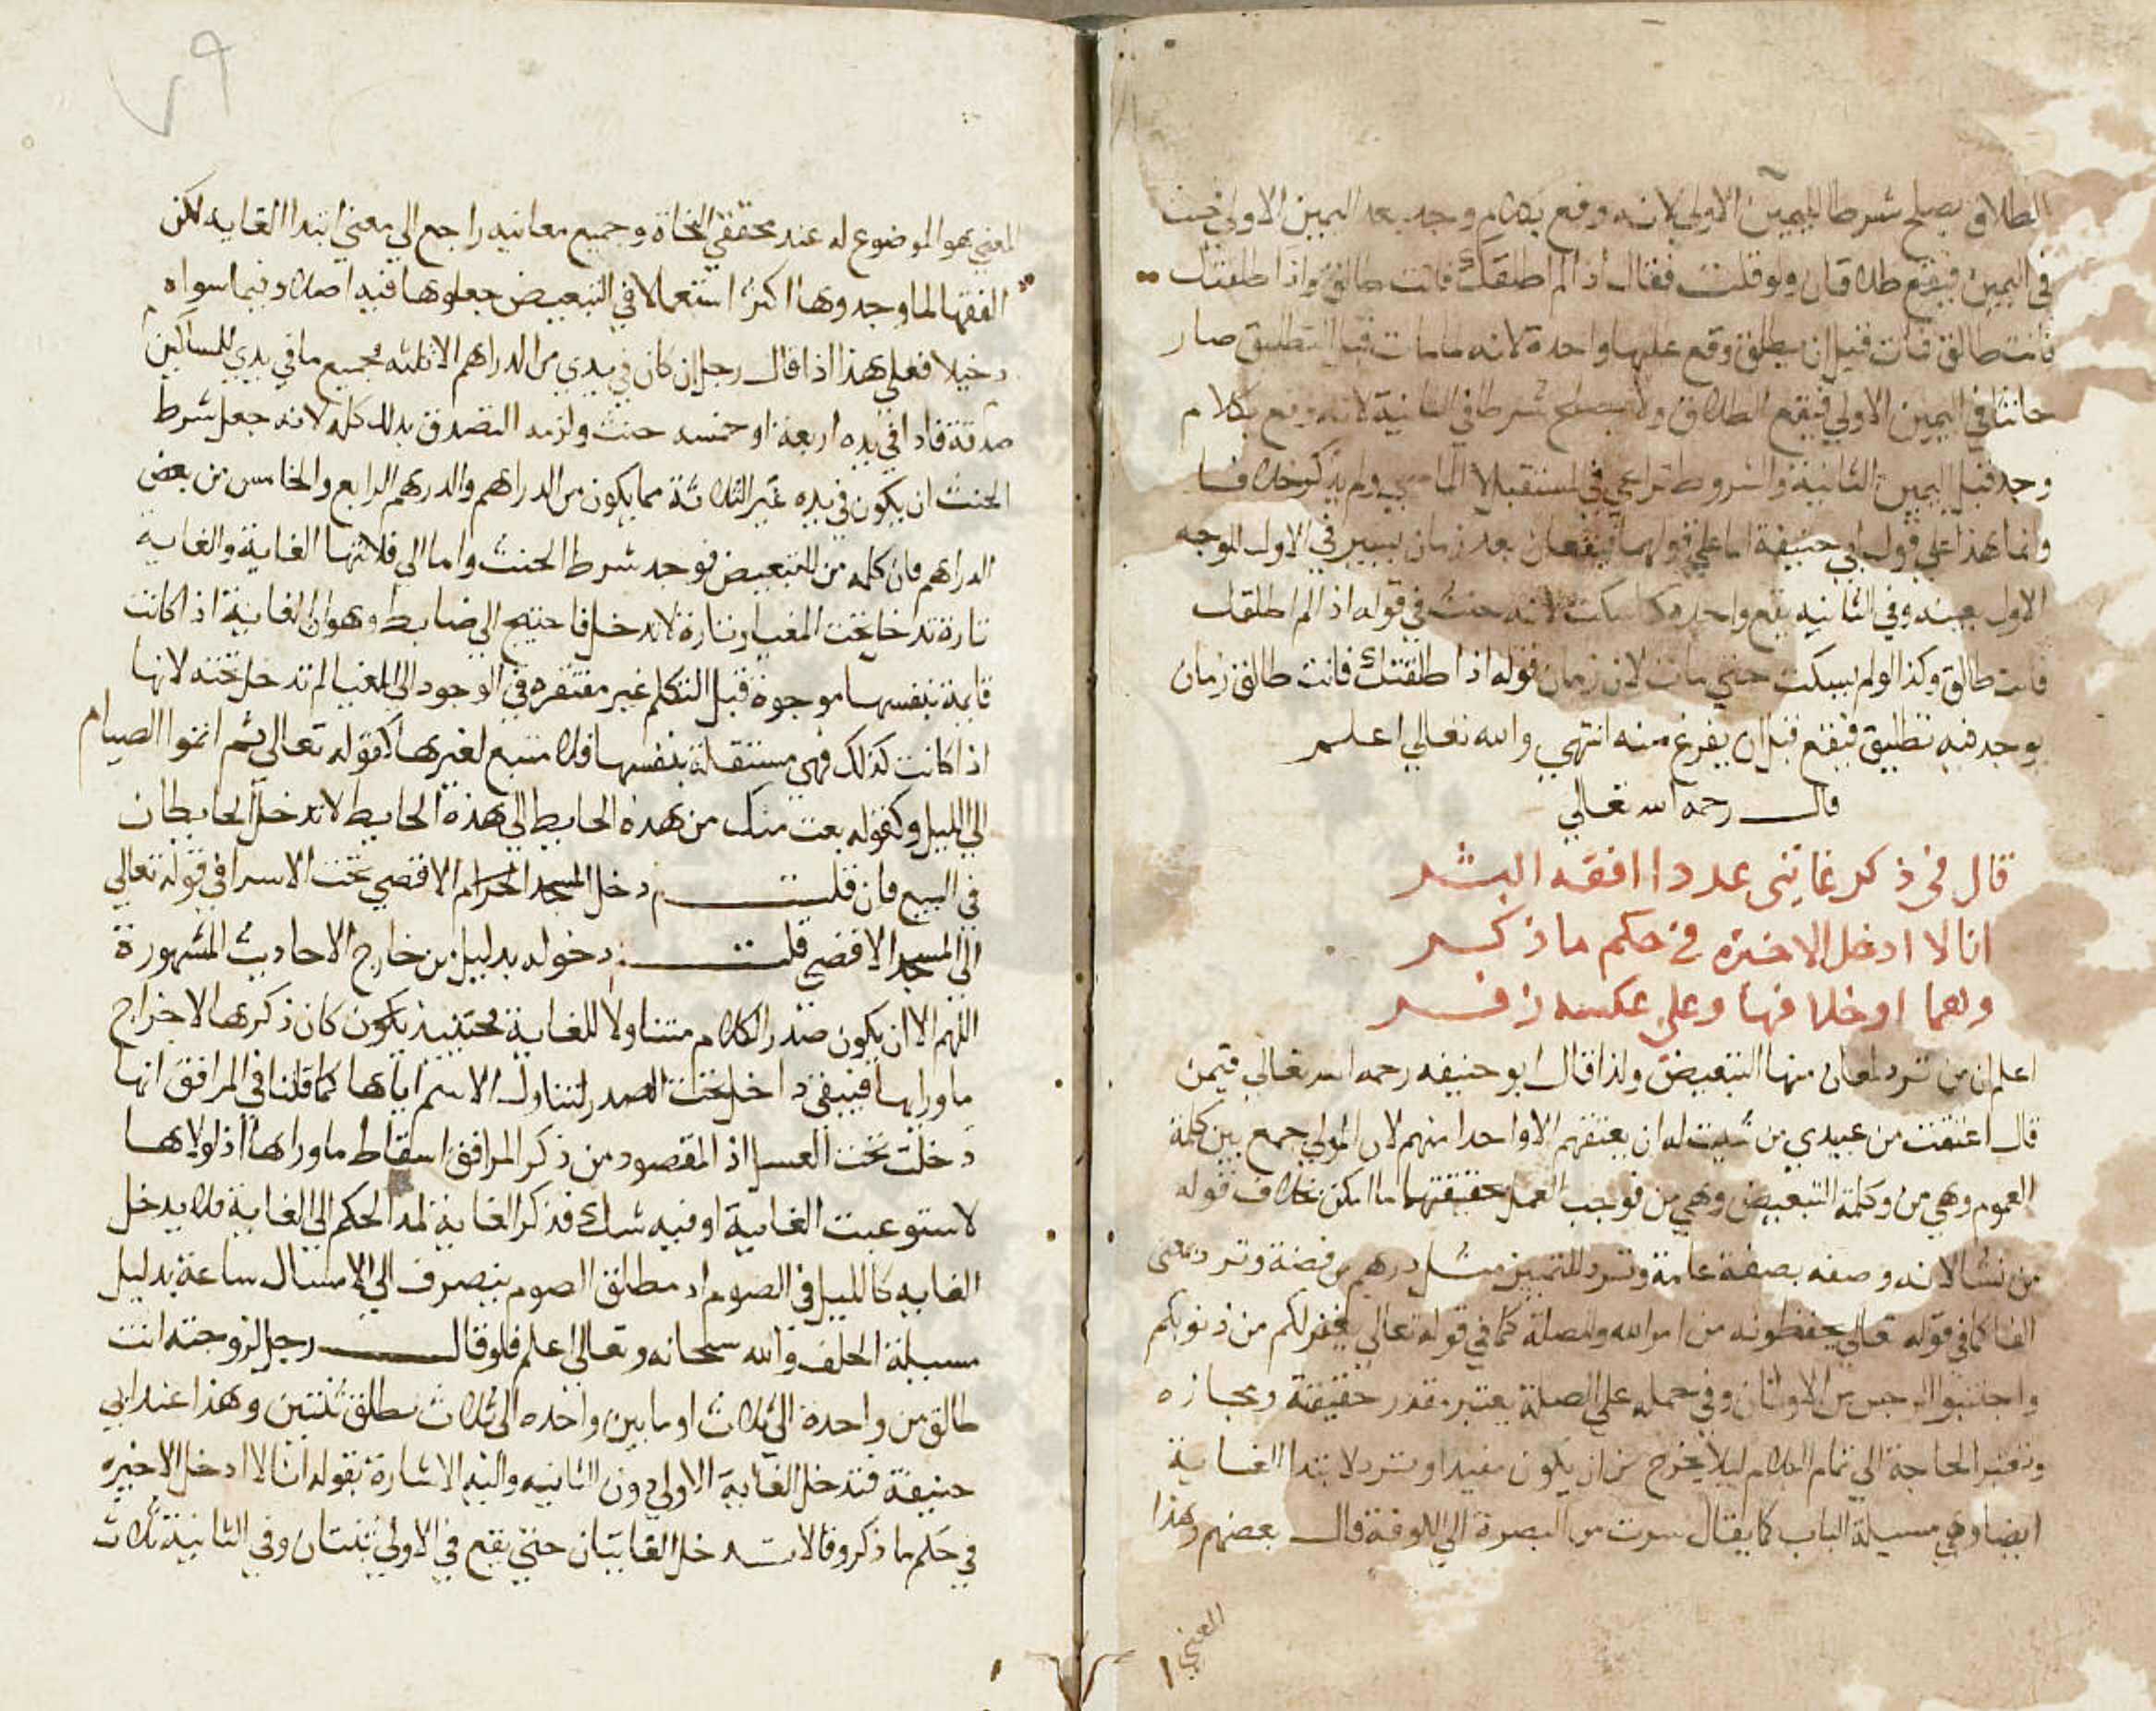 الطلاق يصلح شرطا لليمين الاولي لانه وقع بكلام وجد بعد اليمين الاولي فحنث
في اليمين فيقع طلاقان ولو قلت فقال اذا لم اطلقك فانت طالق واذا طلقتك
فانت طالق فمات قبل ان يطلق وقع عليها واحدة لانه لما مات قبل التطليق صار
حانثا في اليمين الاولي فيقع الطلاق ولا يصلح شرطا في الثانية لانه وقع بكلام
وجد قبل اليمين الثانية والشروط تراعي في المستقبل لا الماضي ولم يذكر خلافا
وانما هذا علي قول ابي حنيفة اما علي قولهما فيقعان بعد زمان يسير في الاول للوجه
الاول بعينه وفي الثانيه يقع واحدة كما سكت لانه حنث في قوله اذا لم اطلقك
فانت طالق وكذا لو لم يسكت حتي مات لان زمان قوله اذا طلقتك فانت طالق زمان
يوجد فيه تطليق فيقع قبل ان يفرغ منه انتهي والله تعالي اعلم
قال رحمه الله تعالي
قال في ذكر غايتي عددا افقه البشر
انا لا ادخل الاخيرة في حكم ما ذكر
وهما اوخلا فيها وعلي عكسه زفر
اعلم ان من ترد لمعان منها التبعيض ولذا قال ابو حنيفه رحمه الله تعالي فيمن
قال اعتقت من عبيدي من شيت له ان يعتقهم الا واحدا منهم لان المولي جمع بين كلمة
العموم وهي من وكلمة التبعيض وهي من فوجب العمل بحقيقتهما ما امكن بخلاف قوله
من نشا لانه وصفه بصفة عامة وترد للتمييز مثل درهم من فضة وترد بمعني
الفا كما في قوله تعالي يحفظونه من امر الله وللصلة كما في قوله تعالي يغفر لكم من ذنوبكم
واجتنبوا الرجس من الاوثان وفي حمله علي الصلة يعتبر تعذر حقيقة ومجازه
وتعتبر الحاجة الي تمام الكلام ليلا يخرج من ان يكون مفيدا وترد لابتدا الغاية
ايضا وهي مسيلة الباب كما يقال سرت من البصرة الي الكوفة قال بعضهم وهذا
المعني
٧٩
المعني هو الموضوع له عند محققي النحاة وجميع معانيه راجع الي معني ابتدا الغايه لكن
الفقها لما وجدوها اكثر استعمالا في التبعيض جعلوها فيه اصلا وفيما سواه
دخيلا فعلي هذا اذا قال رجل ان كان في يدي من الدراهم الا ثلثه فجميع ما في يدي للمساكين
صدقة فاذا في يده اربعة او خمسه حنث ولزمه التصدق بذلك كله لانه جعل شرط
الحنث ان يكون في يده غير الثلاثة مما يكون من الدراهم والدرهم الرابع والخامس من بعض
الدراهم فان كلمه من للتبعيض فوجد شرط الحنث واما الي فلانتها الغاية والغاية
تارة تدخل تحت المغيا وتارة لا تدخل فاحتيج الي ضابط وهو ان الغاية اذا كانت
قايمة بنفسها موجوة قبل التكلم غير مفتقره في الوجود الي المغيا لم تدخل تحته لانها
اذا كانت كذلك فهي مستقلة بنفسها فلا تتبع لغيرها كقوله تعالي ثم اتموا الصيام
الي الليل وكقوله بعت منك من هذه الحايط الي هذه الحايط لا تدخل الحايطان
في البيع فان قلت دخل المسجد الحرام الاقصي تحت الاسرا في قوله تعالي
الي المسجد الاقصي قلت دخوله بدليل من خارج الاحاديث المشهورة
اللهم الا ان يكون صدر الكلام متناولا للغاية فحينيذ يكون كان ذكرها لاخراج
ما وراها فيبقي داخل تحت الصدر لتناول الاسم اياها كما قلنا في المرافق انها
دخلت تحت الغسل اذ المقصود من ذكر المرافق اسقاط ما وراها اذ لولاها
لاستوعبت الغاية او فيه شك فذكر الغاية لمد الحكم الي الغاية فلا يدخل
الغايه كالليل في الصوم اذ مطلق الصوم ينصرف الي الامساك ساعة بدليل
مسيلة الحلف والله سبحانه وتعالي اعلم فلو قال رجل لزوجته انت
طالق من واحدة الي ثلاث او ما بين واحده الي ثلاث تطلق ثنتين وهذا عند ابي
حنيفة فتدخل الغاية الاولي دون الثانيه واليه الاشارة بقوله انا لا ادخل الاخيره
في حكم ما ذكر وقالا تدخل الغايتان حتي يقع في الاولي ثنتان وفي الثانية ثلاث